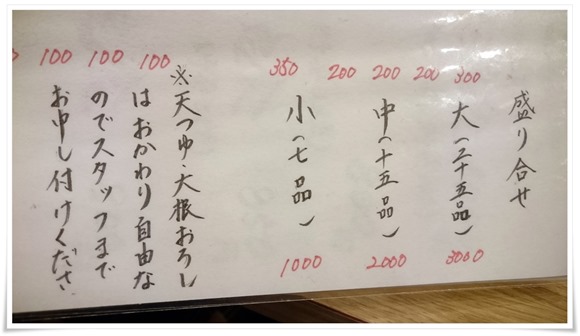 100 100 100 350 200 200 200 300
盛り合せ
大(二十五品) 3000
中(十五品) 2000
小(七品) 1000
※天つゆ・大根おろし
はおかわり自由な
のでスタッフまで
お申し付けくださ